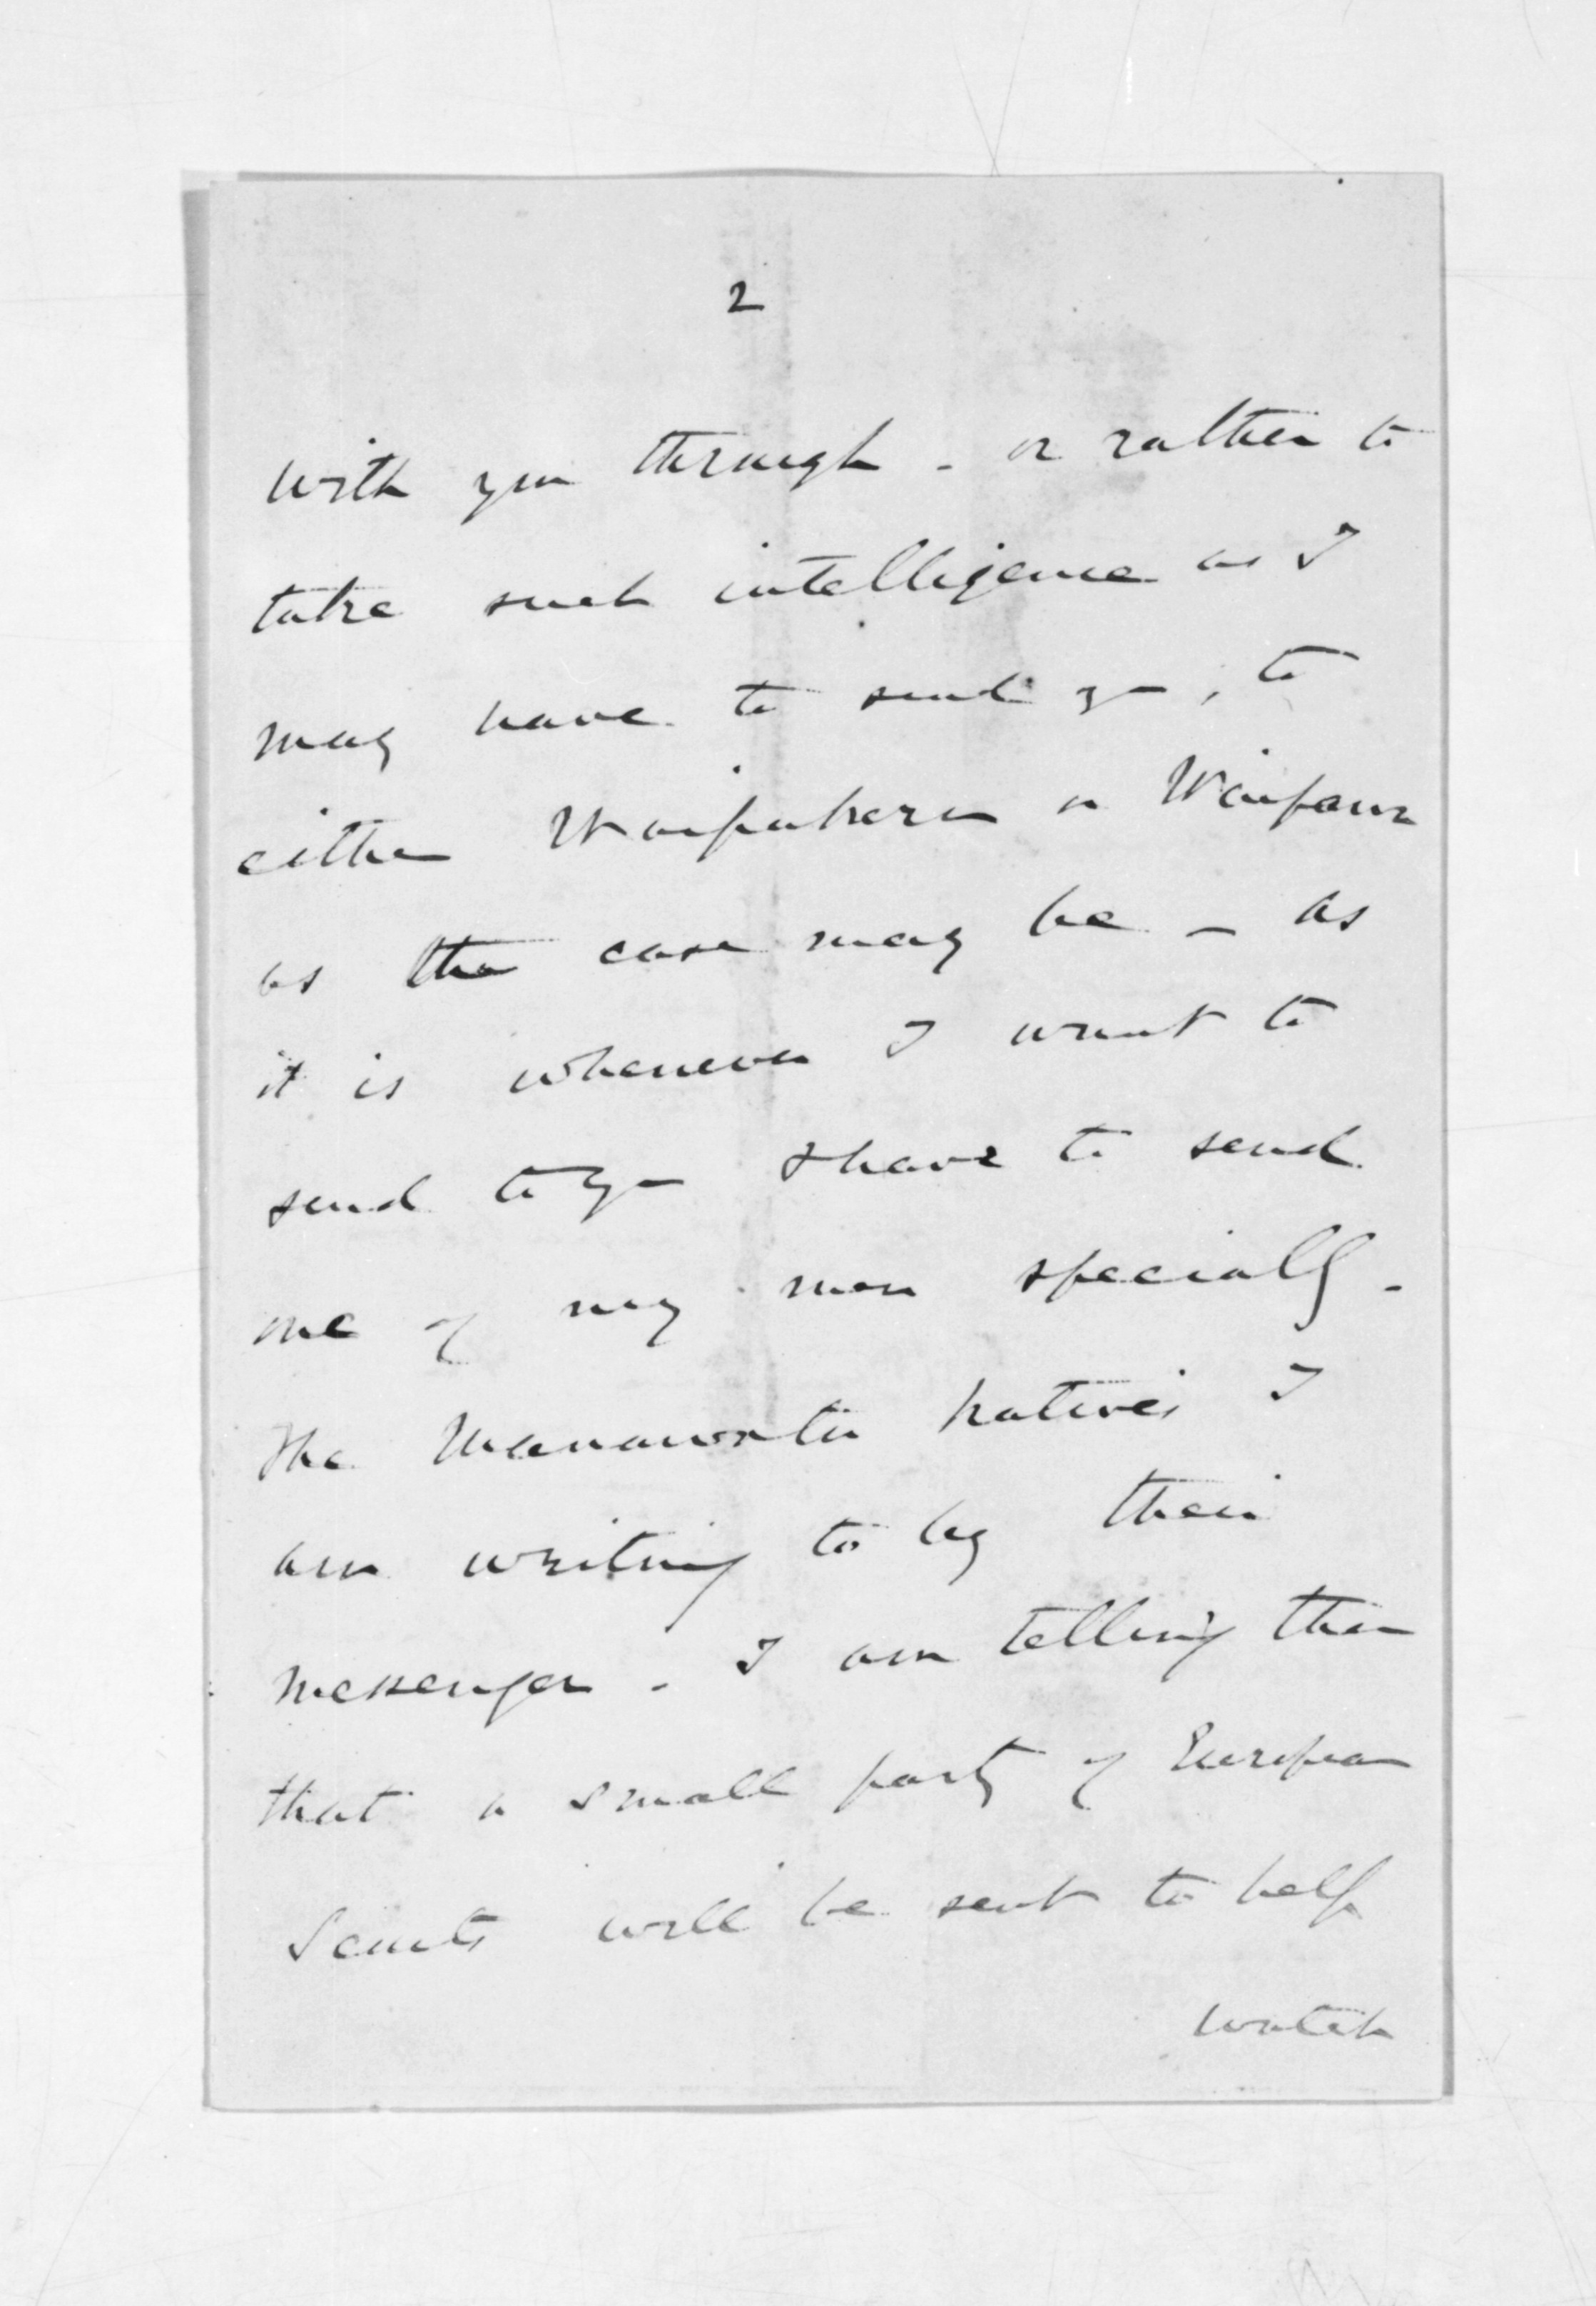 2
with you through - or rather to
take such intelligence as I
may have to send you, to
either Waipukurau or Waipawa
as the case may be - as
it is whenever I want to
send to you I have to send
one of my men specially -
The Manawatu natives I
am writing to by their
messenger - I am telling them
that a small party of European
Scouts will be sent to help
watch